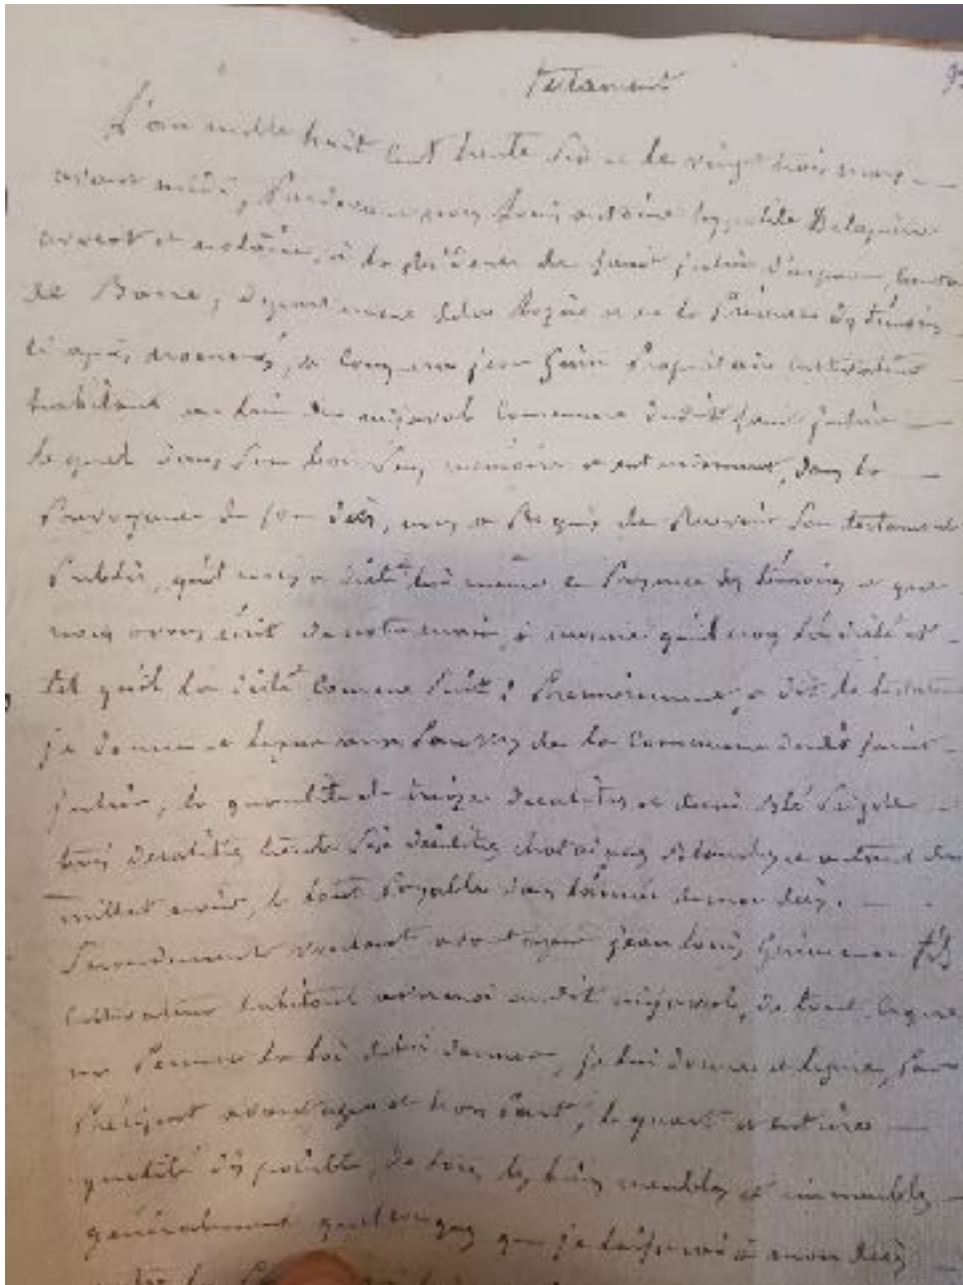 testament
L'an mille huit cent trente six et le vingt trois mars
avant midi, Pardevant nous Louis antoine hyppolite Delapierre
avocat et notaire, à la résidence de saint julien d'arpaon, canton
de Barre, département de la Lozère et en la Présence des témoins
ci après nommés, a comparu jean Proprietaire cultivateur
habitant au lieu du mijavol commune dudit saint julien
le quel dans son bon sens mémoire et entendement, dans la
Prevoyance de son décès, nous a Requis de Recevoir son testament
Public, qu'il nous a dicté lui même en Présence des témoins et que
nous avons écrit de notre main à mesure qu'il nous l'a dicté et
tel qu'il l'a dicté comme suit : Premierement, a dit le testateur
je donne et legue aux Pauvres de la commune dudit saint
julien, la quantité de treize decalitres et demi blé Seigle
trois decalitres trente six décalitres chataignes blanches et autant de
millet noir, le tout Payable dans l'année de mon décès.
Secondement voulant avantager jean Louis fils
cultivateur habitant avec moi audit mijavol, de tout ce que
me Permet la loi de lui donner, je lui donne et legue, Par
Préciput avantage et hors Part, le quart et entière
quotité disponible, de tous les biens meubles et immeubles
généralement quelconques que je laisserai à mon décès